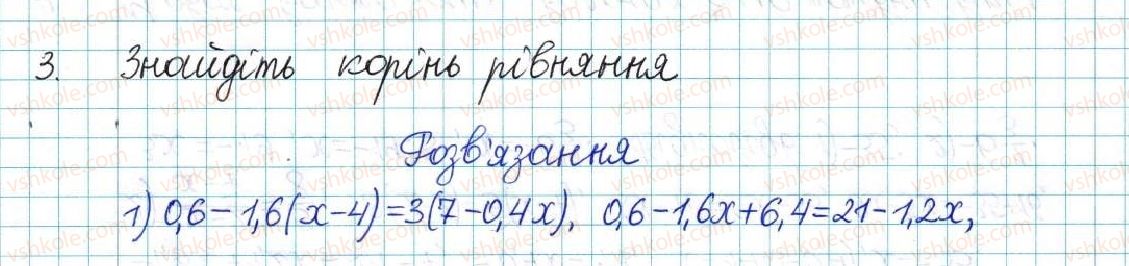 3. Знайдіть корінь рівняння
Розв'язання
1) 0,6-1,6(x-4)=3(7-0,4x), 0,6-1,6x+6,4=21-1,2x,